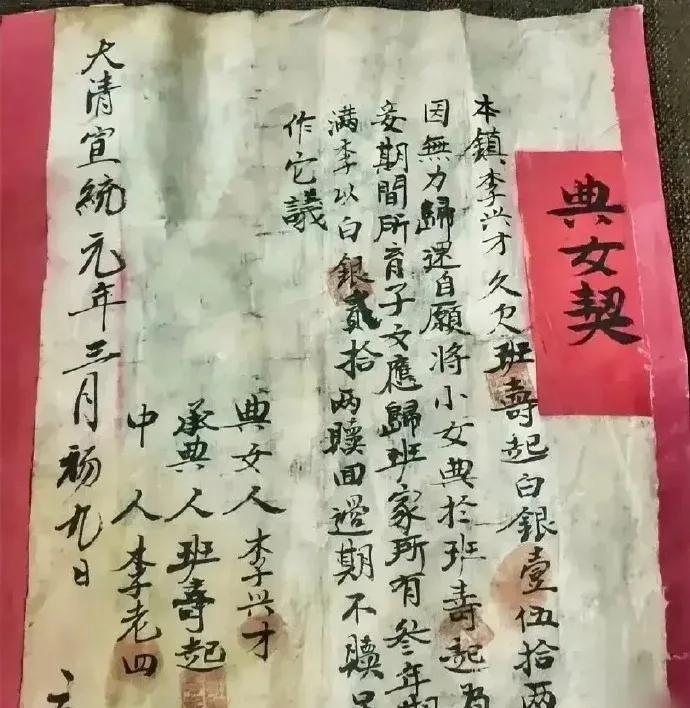 典女契
本鎮李兴才久欠班壽起白銀壹伍拾两
因無力歸还自願將小女典於班壽起為
妾期間所育子女應歸班家所有叁年期
满李以白銀貳拾两贖回過期不贖
作它議
典女人李兴才
承典人班壽起
中人李老四
大清宣統元年三月初九日